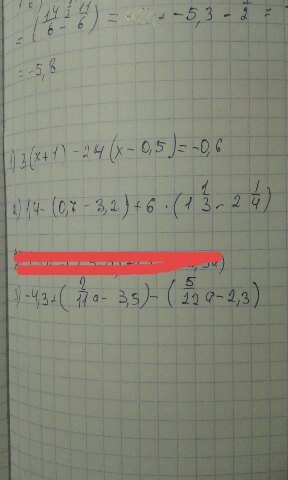 = (14/6 - 11/6) = -5,3 - 1/2 =
= -5,8
1) 3(x+1) - 2,4(x - 0,5) = -0,6
2) 1,4 - (0,7 - 3,2) + 6 · (1 1/3 - 2 1/4)
3) -4,3 + (2/11 a - 3,5) - (5/12 a - 2,3)